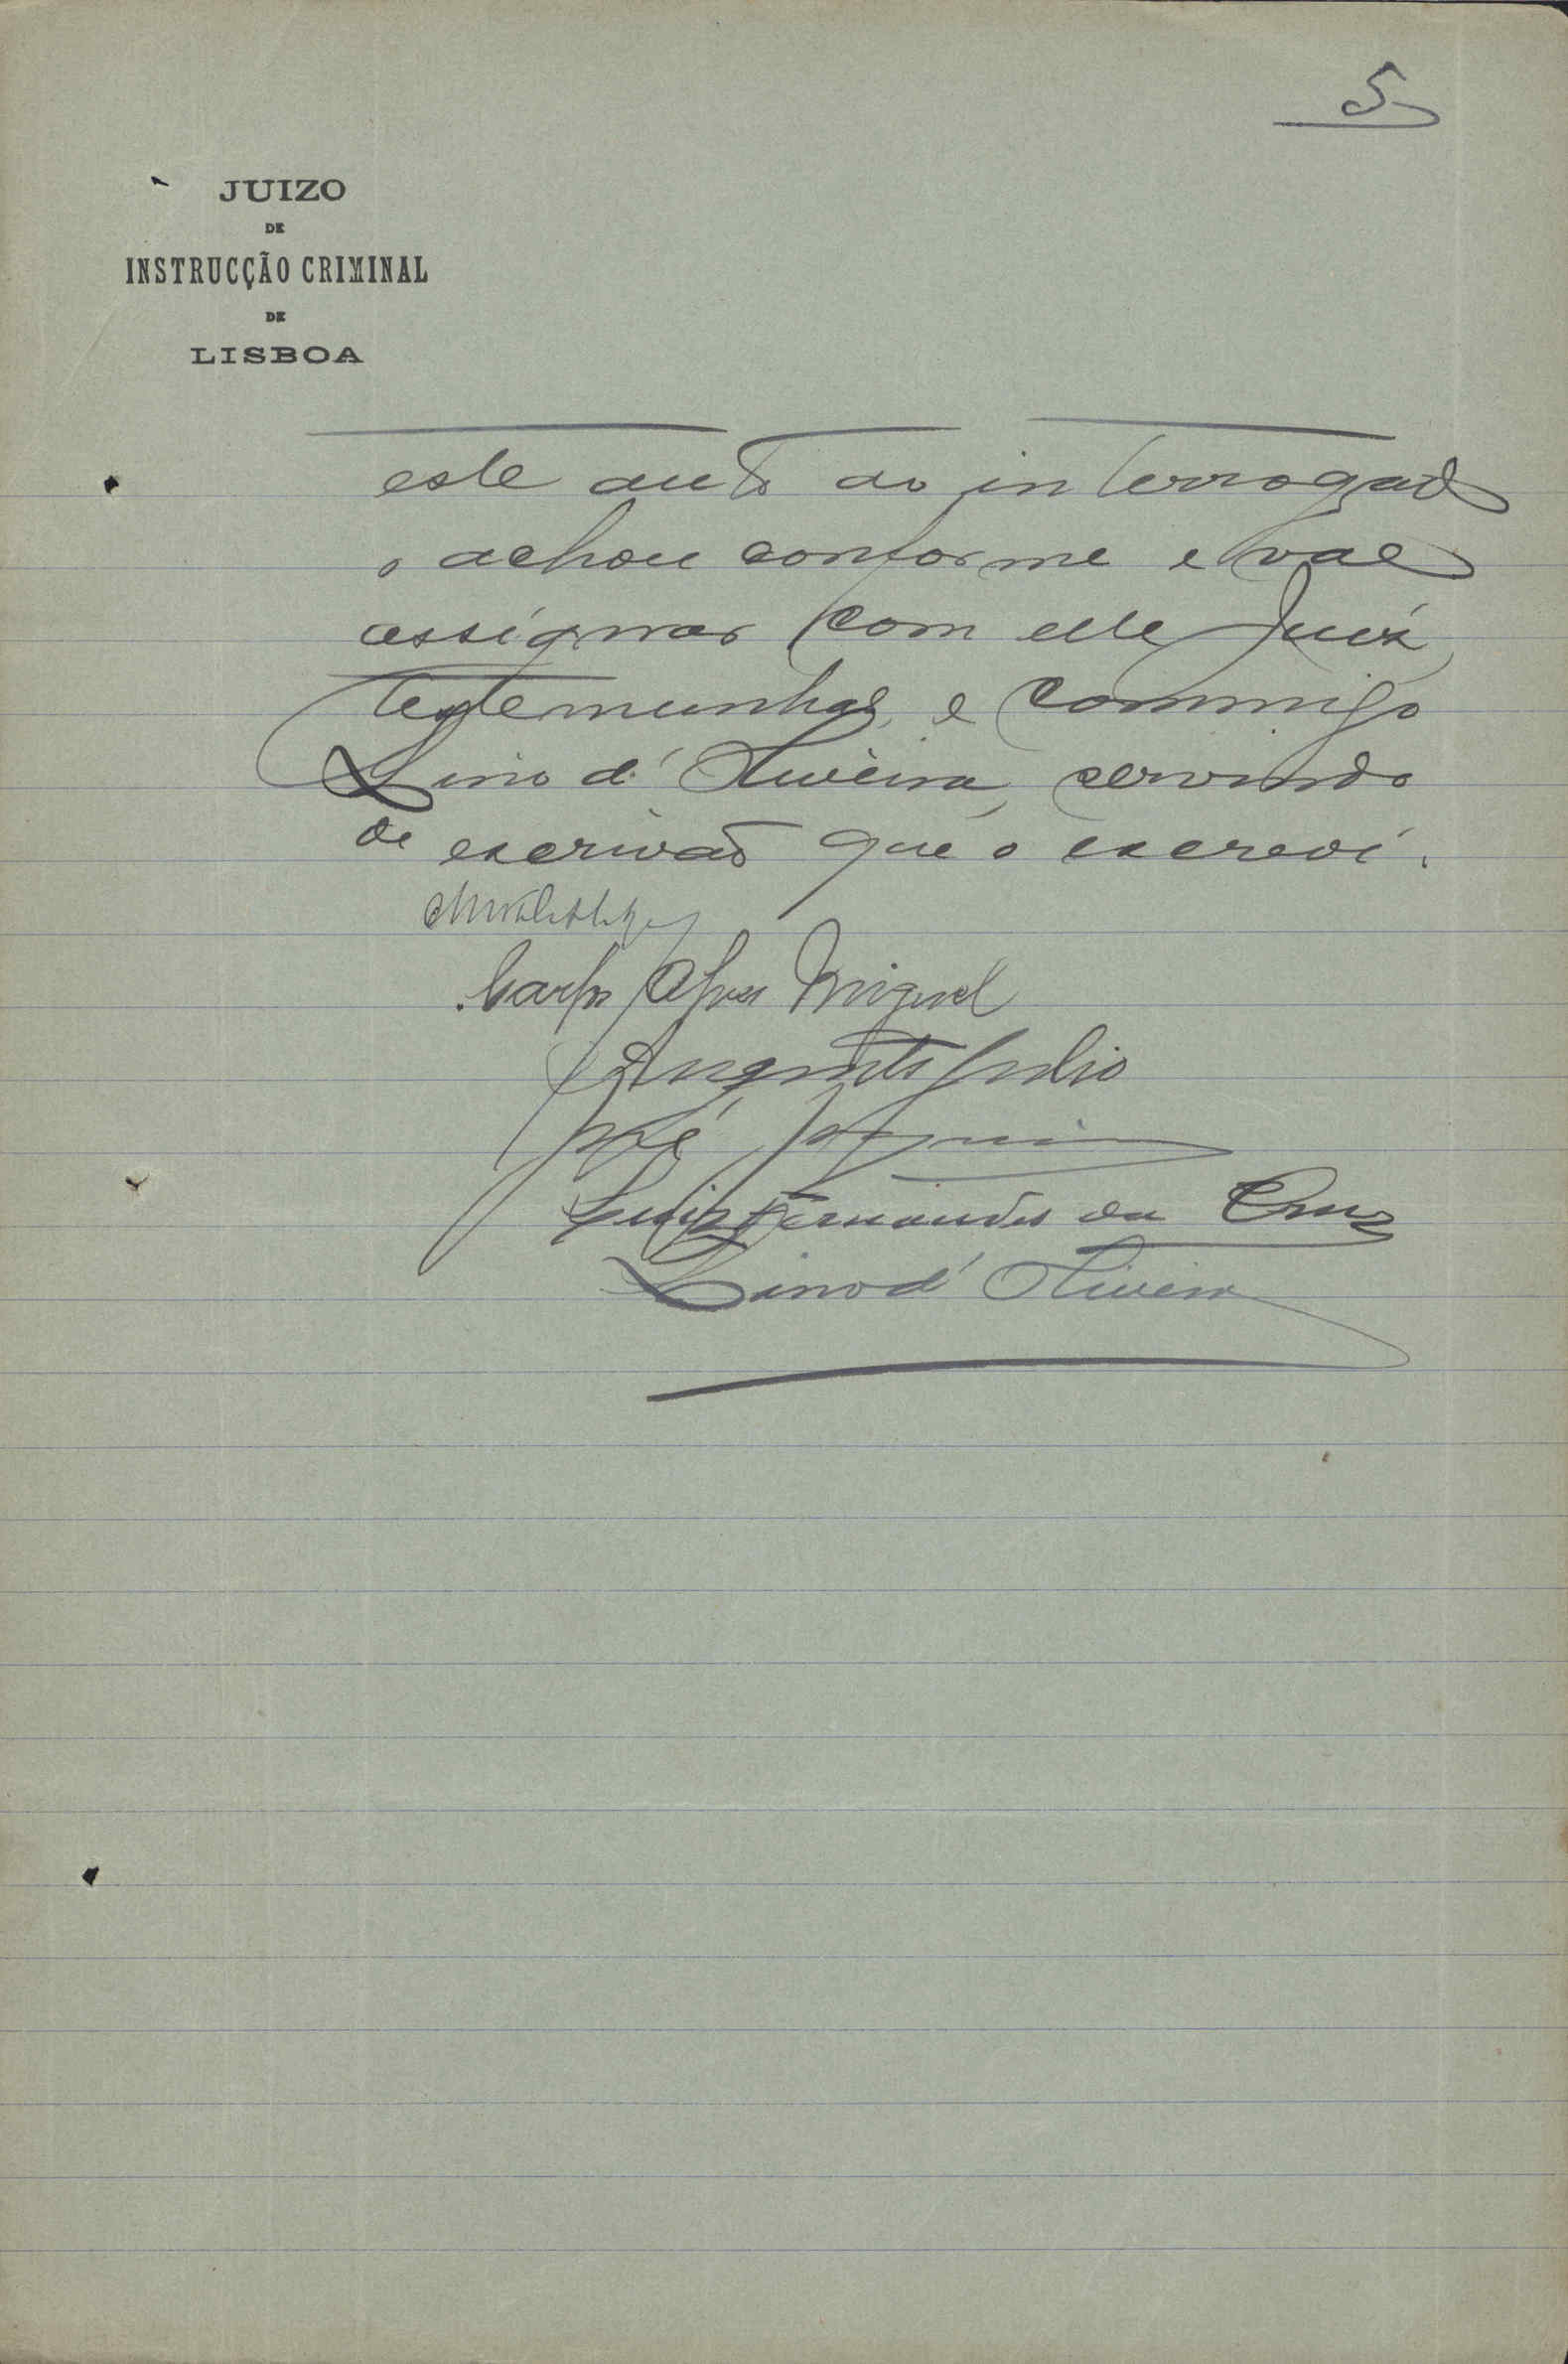 5
JUIZO
DE
INSTRUCÇÃO CRIMINAL
DE
LISBOA
este auto ao interrogado
o achou conforme e vae
assignar com elle Juiz,
testemunhas, e commigo
Lino d'Oliveira, servindo
de escrivão que o escrevi.
Carlos Alves Miguel
Augusto Julio
José Joaquim
Luiz Fernandes da Cruz
Lino d'Oliveira